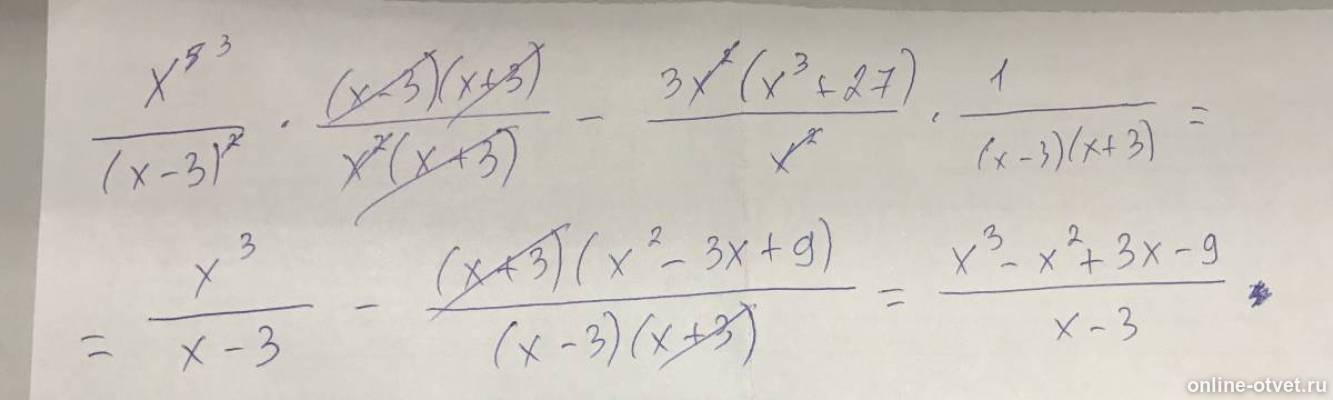 x^5 3/(x-3)^2 · (x-3)(x+3)/x^2(x+3) - 3x^2(x^3+27)/x^2 · 1/(x-3)(x+3) =
= x^3/x-3 - (x+3)(x^2-3x+9)/(x-3)(x+3) = x^3-x^2+3x-9/x-3
online-otvet.ru